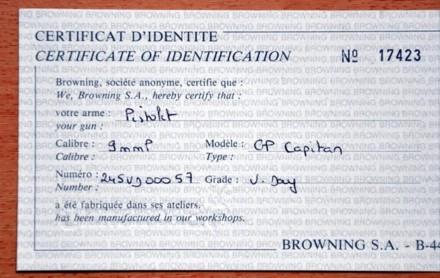 CERTIFICAT D'IDENTITE
CERTIFICATE OF IDENTIFICATION Nº 17423
Browning, société anonyme, certifie que :
We, Browning S.A., hereby certify that :
votre arme : Pistolet
your gun :
Calibre : 9mmP Modèle : GP Capitan
Calibre : Type :
Numéro : 245VJ00057 Grade : V. Day
Number :
a été fabriquée dans ses ateliers.
has been manufactured in our workshops.
BROWNING S.A. - B-44